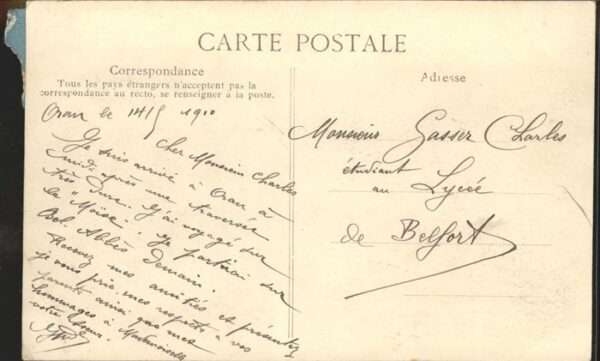 CARTE POSTALE
Correspondance
Tous les pays étrangers n'acceptent pas la
correspondance au recto, se renseigner à la poste.
Adresse
Oran le 14/5 1910
Cher Monsieur Charles
Je suis arrivé à Oran à
midi après une traversée
très dure. J'ai voyagé sur
le "Moïse". Je partirai sur
Bel. Abbès Demain.
Recevez mes amitiés et présentez
je vous prie mes respects à vos
parents ainsi que mes
hommages à Mademoiselle
votre soeur.
Monsieur Gasser Charles
étudiant
au Lycée
de Belfort